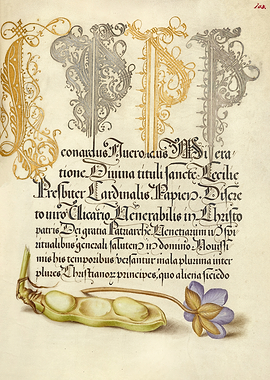 103.
L P P P
eonardus Fuerosius Misera
tione Divina tituli sancte Cecilie
Presbiter Cardinalis Papien Discre
to viro Vicario Venerabilis in Christo
patris Dei gratia Patriarche Venetiarum in Spi
ritualibus generali salutem in domino. Noviss
mis his temporibus versantur mala plurima inter
plures Christianor principes, quo aliena sic